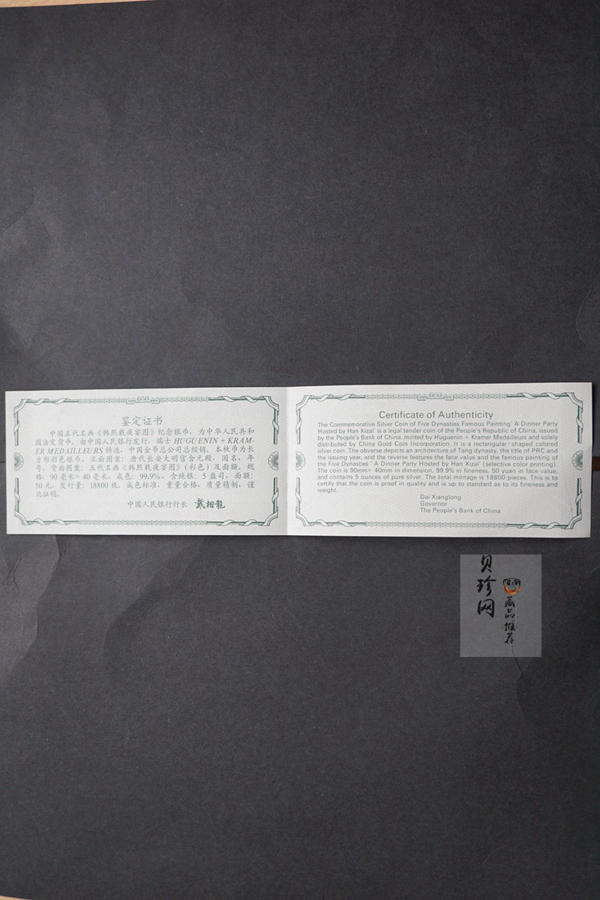 鉴定证书
中国五代名画《韩熙载夜宴图》纪念银币，为中华人民共和
国法定货币，由中国人民银行发行，瑞士 HUGUENIN + KRAM-
ER MEDAILLEURS 铸造，中国金币总公司总经销。本枚币为长
方形彩色银币，正面图案：唐代长安大明宫含元殿，国名、年
号，背面图案：五代名画《韩熙载夜宴图》（彩色）及面额。规
格：90 毫米×40 毫米，成色：99.9%，含纯银：5 盎司，面额：
50 元，发行量：18800 枚。成色标准，重量合格，质量精制，谨
此证明。
中国人民银行行长 戴相龙
Certificate of Authenticity
The Commemorative Silver Coin of Five Dynasties Famous Painting' A Dinner Party
Hosted by Han Xizai' is a legal tender coin of the People's Republic of China, issued
by the People's Bank of China, minted by Huguenin + Kramer Medailleurs and solely
distributed by China Gold Coin Incorporation. It is a rectangular-shaped colored
silver coin. The obverse depicts an architecture of Tang dynasty, the title of PRC and
the issuing year, and the reverse features the face value and the famous painting of
the Five Dynasties' A Dinner Party Hosted by Han Xizai' (selective color printing).
The coin is 90mm× 40mm in dimension, 99.9% in fineness, 50 yuan in face value,
and contains 5 ounces of pure silver. The total mintage is 18800 pieces. This is to
certify that the coin is proof in quality and is up to standard as to its fineness and
weight.
Dai Xianglong
Governor
The People's Bank of China
贝珍网
藏品推荐